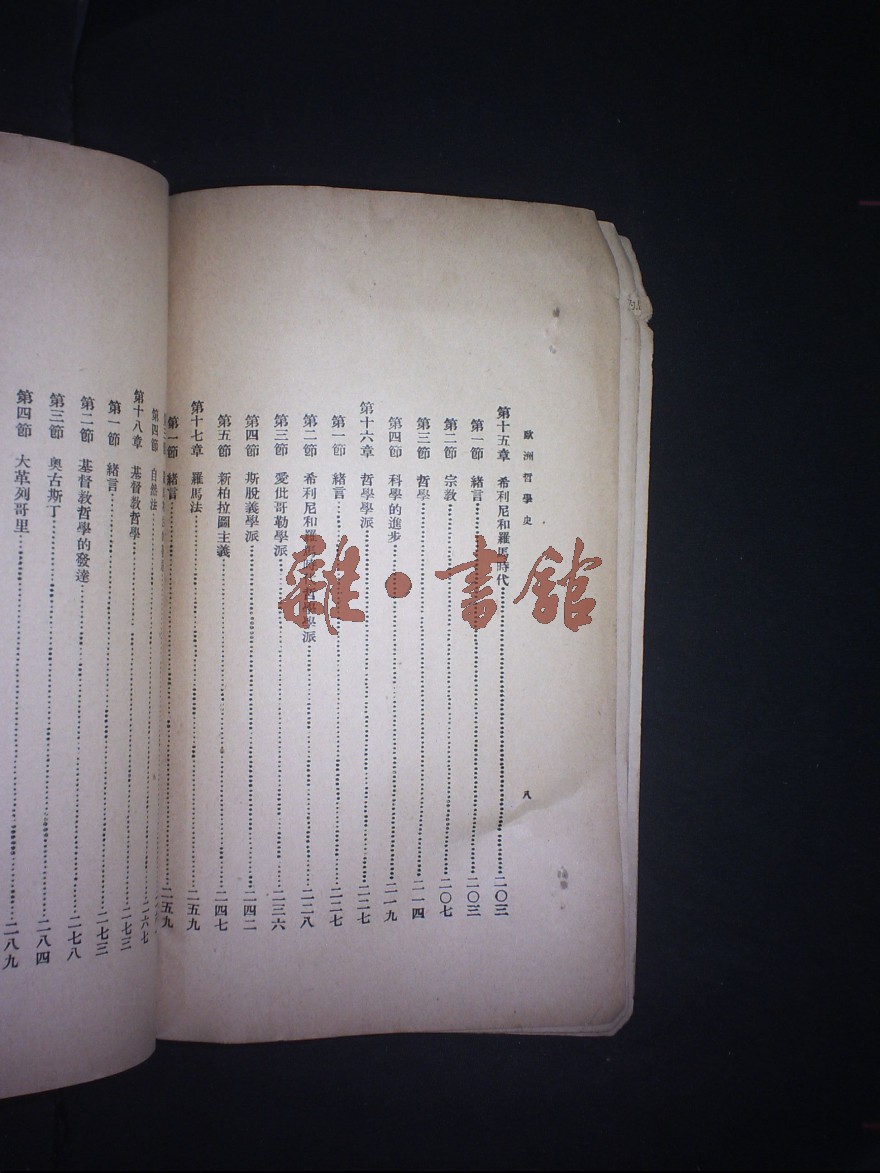 歐洲哲學史
八
第十五章 希利尼和羅馬時代 二〇三
第一節 緒言 二〇三
第二節 宗教 二〇七
第三節 哲學 二一四
第四節 科學的進步 二一九
第十六章 哲學學派 二二七
第一節 緒言 二二七
第二節 希利尼和羅馬時代哲學學派 二二八
第三節 愛仳哥勒學派 二三六
第四節 斯脫義學派 二四二
第五節 新柏拉圖主義 二四七
第十七章 羅馬法 二五九
第一節 緒言 二五九
第四節 自然法 二六七
第十八章 基督教哲學 二七三
第一節 緒言 二七三
第二節 基督教哲學的發達 二七八
第三節 奧古斯丁 二八四
第四節 大革列哥里 二八九
雜·書館